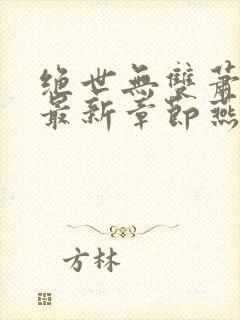 绝世無雙蕭
最新章節燕
方林